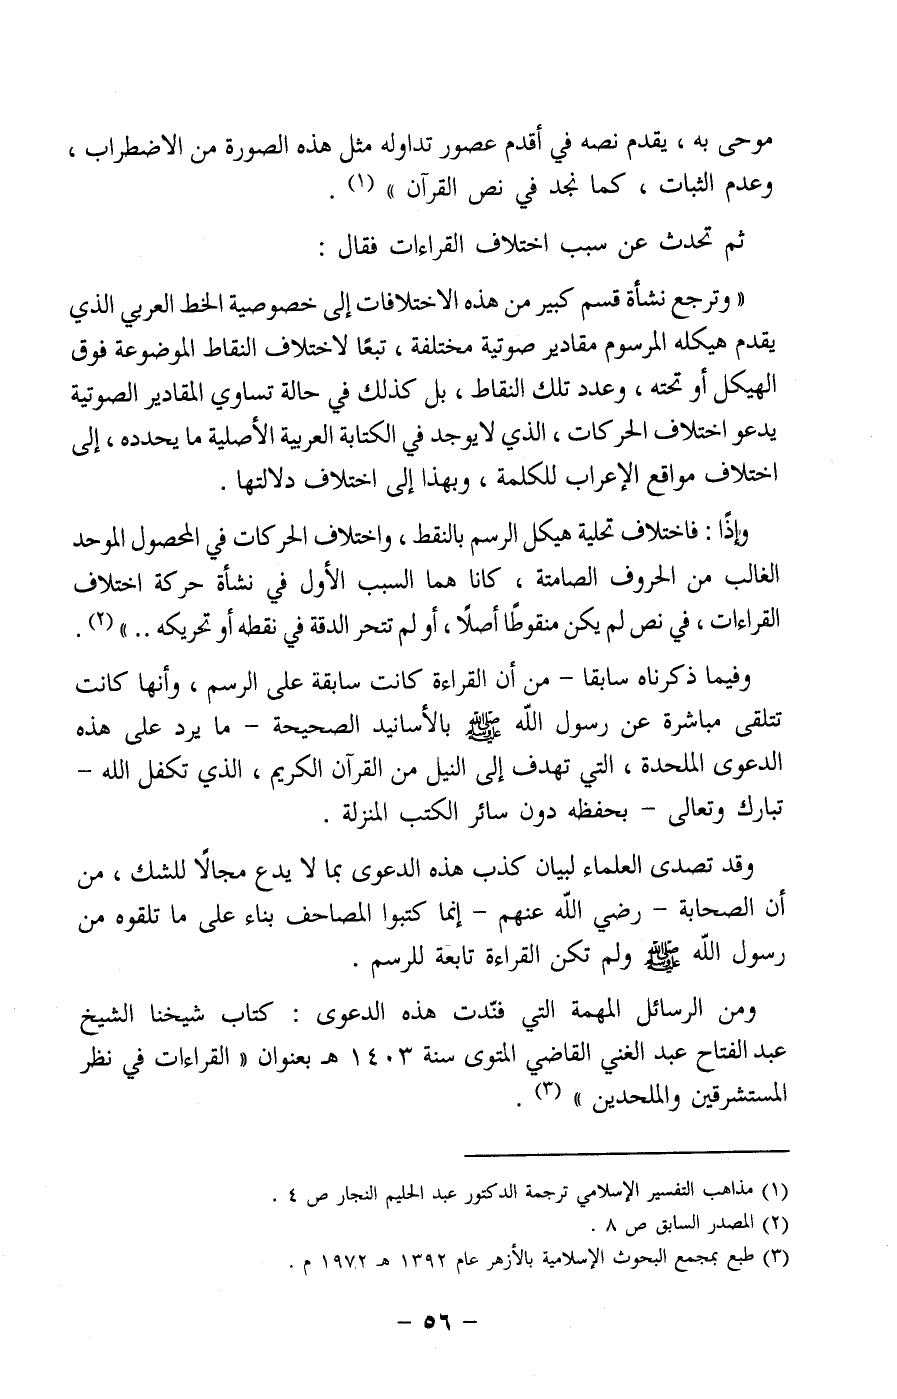 موحى به ، يقدم نصه في أقدم عصور تداوله مثل هذه الصورة من الاضطراب ،
وعدم الثبات ، كما نجد في نص القرآن » (١) .
ثم تحدث عن سبب اختلاف القراءات فقال :
« وترجع نشأة قسم كبير من هذه الاختلافات إلى خصوصية الخط العربي الذي
يقدم هيكله المرسوم مقادير صوتية مختلفة ، تبعًا لاختلاف النقاط الموضوعة فوق
الهيكل أو تحته ، وعدد تلك النقاط ، بل كذلك في حالة تساوي المقادير الصوتية
يدعو اختلاف الحركات ، الذي لايوجد في الكتابة العربية الأصلية ما يحدده ، إلى
اختلاف مواقع الإعراب للكلمة ، وبهذا إلى اختلاف دلالتها .
وإذًا : فاختلاف تحلية هيكل الرسم بالنقط ، واختلاف الحركات في المحصول الموحد
الغالب من الحروف الصامتة ، كانا هما السبب الأول في نشأة حركة اختلاف
القراءات ، في نص لم يكن منقوطًا أصلًا ، أو لم تتحر الدقة في نقطه أو تحريكه .. » (٢) .
وفيما ذكرناه سابقا – من أن القراءة كانت سابقة على الرسم ، وأنها كانت
تتلقى مباشرة عن رسول اللّه ﷺ بالأسانيد الصحيحة – ما يرد على هذه
الدعوى الملحدة ، التي تهدف إلى النيل من القرآن الكريم ، الذي تكفل الله –
تبارك وتعالى – بحفظه دون سائر الكتب المنزلة .
وقد تصدى العلماء لبيان كذب هذه الدعوى بما لا يدع مجالًا للشك ، من
أن الصحابة – رضي اللّه عنهم – إنما كتبوا المصاحف بناء على ما تلقوه من
رسول اللّه ﷺ ولم تكن القراءة تابعة للرسم .
ومن الرسائل المهمة التي فنّدت هذه الدعوى : كتاب شيخنا الشيخ
عبد الفتاح عبد الغني القاضي المتوى سنة ١٤٠٣ هـ بعنوان « القراءات في نظر
المستشرقين والملحدين » (٣) .
(١) مذاهب التفسير الإسلامي ترجمة الدكتور عبد الحليم النجار ص ٤ .
(٢) المصدر السابق ص ٨ .
(٣) طبع بمجمع البحوث الإسلامية بالأزهر عام ١٣٩٢ هـ ١٩٧٢ م .
– ٥٦ –